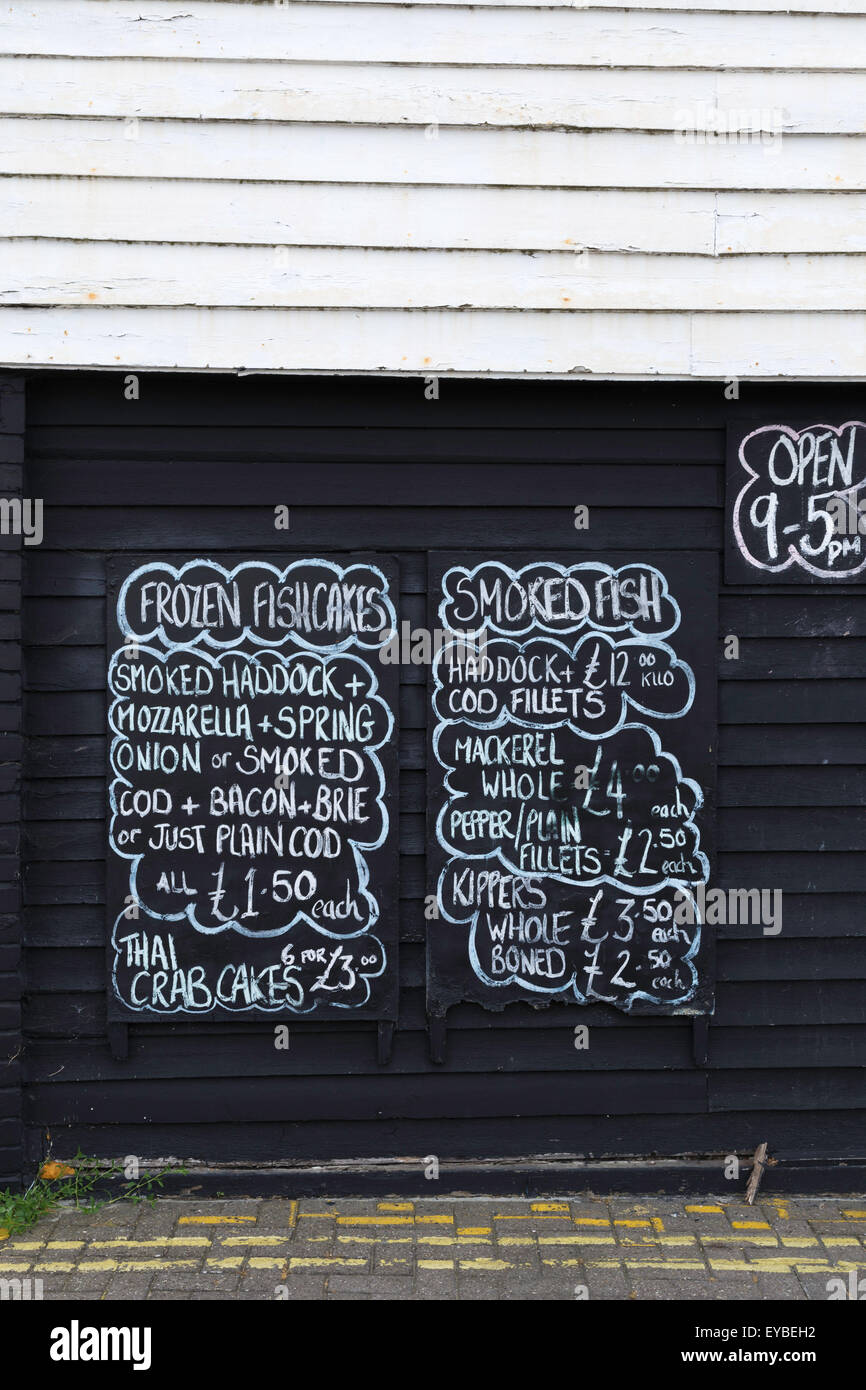 FROZEN FISHCAKES
SMOKED HADDOCK +
MOZZARELLA + SPRING
ONION or SMOKED
COD + BACON + BRIE
or JUST PLAIN COD
ALL £1.50 each
THAI
CRAB CAKES 6 FOR £3.00
SMOKED FISH
HADDOCK + £12.00 KILO
COD FILLETS
MACKEREL
WHOLE £4.00 each
PEPPER/PLAIN
FILLETS = £2.50 each
KIPPERS
WHOLE £3.50 each
BONED £2.50 each
OPEN
9-5pm
alamy
Image ID: EYBEH2
www.alamy.com